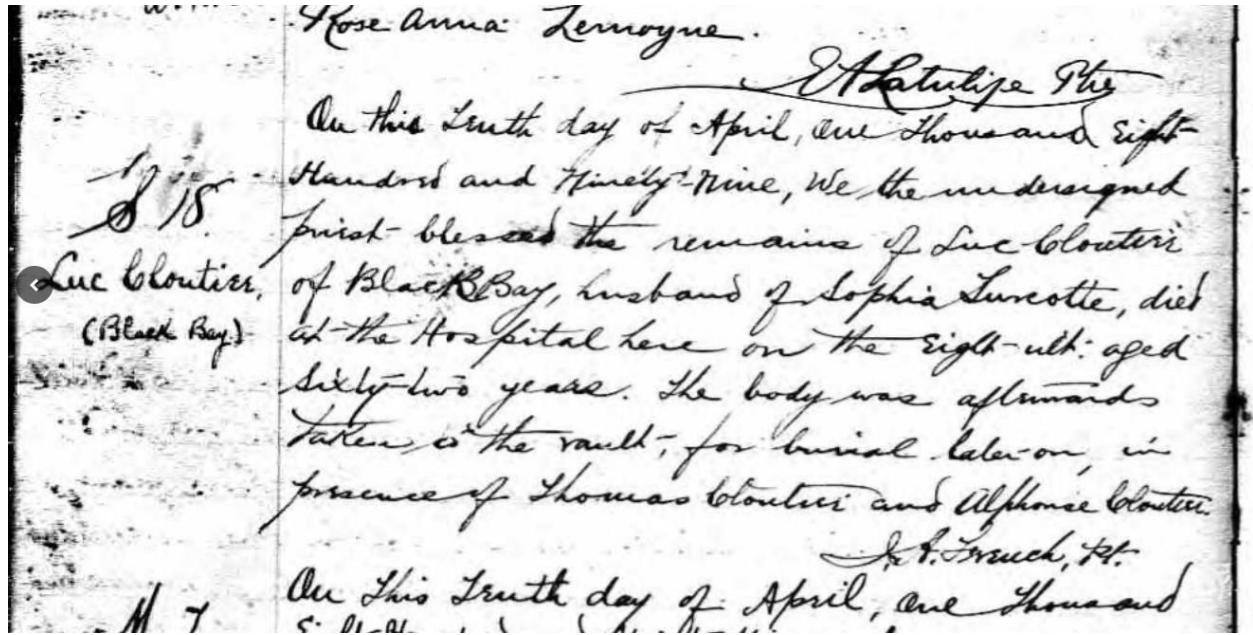 Rose Anna Lemoyne.
EALatulipe Ptre
On this Tenth day of April, One Thousand Eight-
S 18.
Hundred and Ninety-Nine, We the undersigned
priest blessed the remains of Luc Cloutier
Luc Cloutier,
of Black Bay, husband of Sophia Turcotte, died
(Black Bay)
at the Hospital here on the Eight ult: aged
Sixty-two years. The body was afterwards
taken to the vault, for burial later-on, in
presence of Thomas Cloutier and Alphonse Cloutier.
French, Pt.
On This Tenth day of April, One Thousand
M